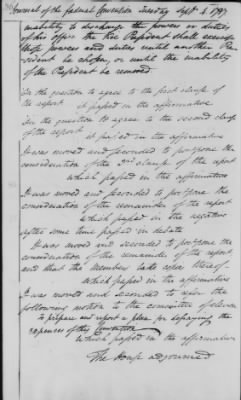 Journal of the federal Convention Tuesday Sept. 4. 1787
inability to discharge the powers or duties
of his office the Vice President shall exercise
those powers and duties until another Pre-
sident be chosen, or until the inability
of the President be removed
On the question to agree to the first clause of
the report it passed in the affirmative
On the question to agree to the second clause
of the report
it passed in the affirmative
It was moved and seconded to postpone the
consideration of the 3rd clause of the report
which passed in the affirmative
It was moved and seconded to postpone the
consideration of the remainder of the report
which passed in the negative
after some time passed in debate
It was moved and seconded to postpone the
consideration of the remainder of the report
and that the Members take copies thereof-
which passed in the affirmative
It was moved and seconded to refer the
following motion to the committee of eleven
to prepare and report a plan for defraying the
expences of this Convention
which passed in the affirmative
The House adjourned